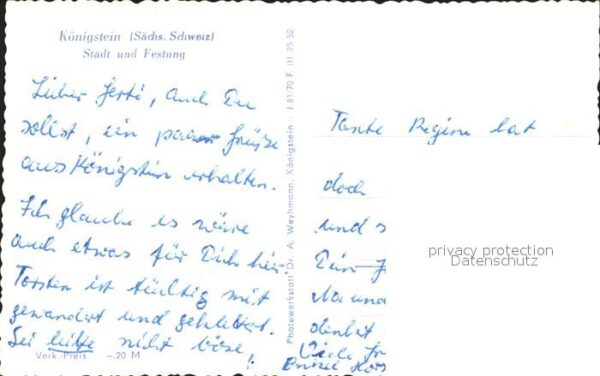 Königstein (Sächs. Schweiz)
Stadt und Festung
Lieber Gerti, auch Du
sollst, ein paar Grüße
aus Königstein erhalten.
Ich glaube es wäre
auch etwas für Dich hier.
Torsten ist tüchtig mit
gewandert und geklettert.
Sei bitte nicht böse,
Verk.-Preis -,20 M
Photowerkstatt Dr. A. Weyhmann, Königstein · J 81/70 F III 25 52
Tante Regina hat
doch
und s
Dein
denkst
Viele
privacy protection
Datenschutz